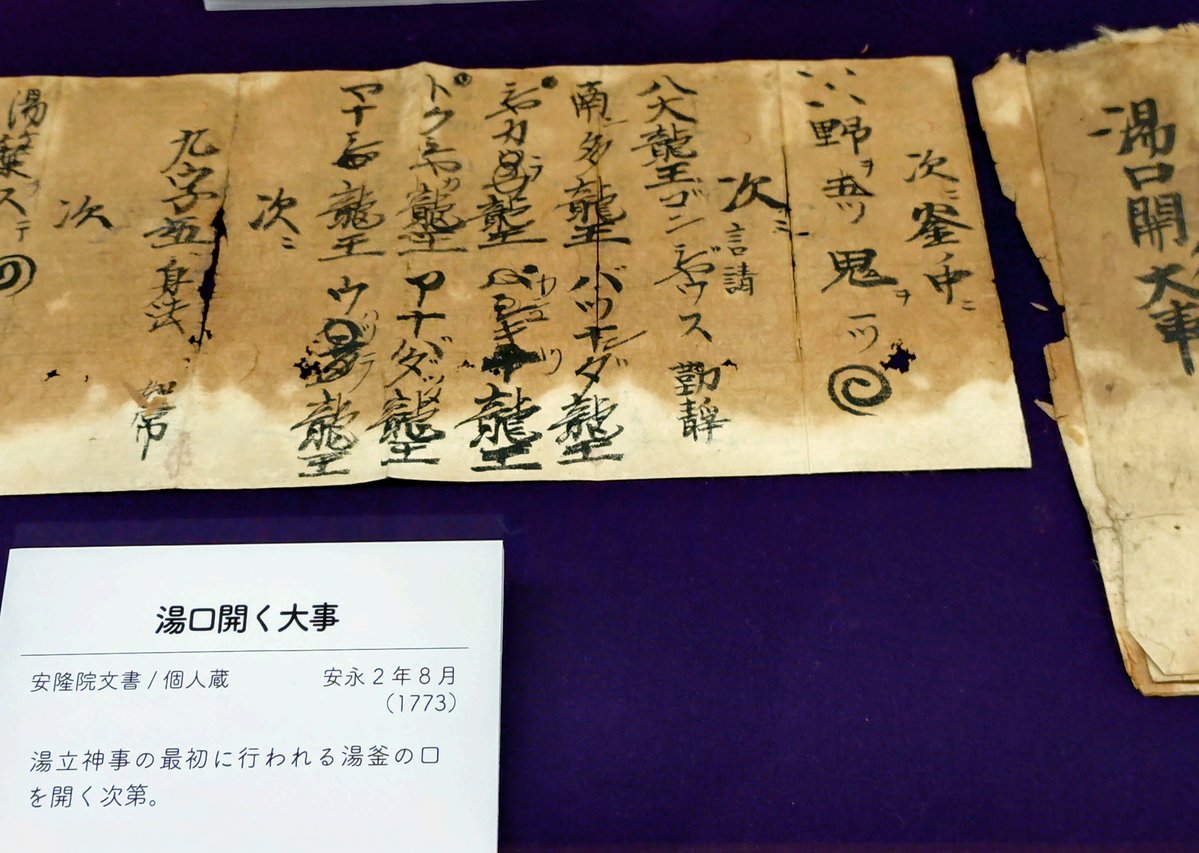 湯口開大事
次ニ釜ノ中ニ
野ヲ 鬼ヲ一ツ
次ニ 言請
八大龍王ゴン ウス 勸靜
南多龍王 バツナンダ龍王
シヤカラ龍王
トク シヤカ龍王 アナバダツ龍王
マナシ龍王 ウハツラ龍王
次ニ
九字 身法 如常
次
湯 ヲ ステ
湯口開く大事
安隆院文書/個人蔵 安永2年8月
(1773)
湯立神事の最初に行われる湯釜の口
を開く次第。